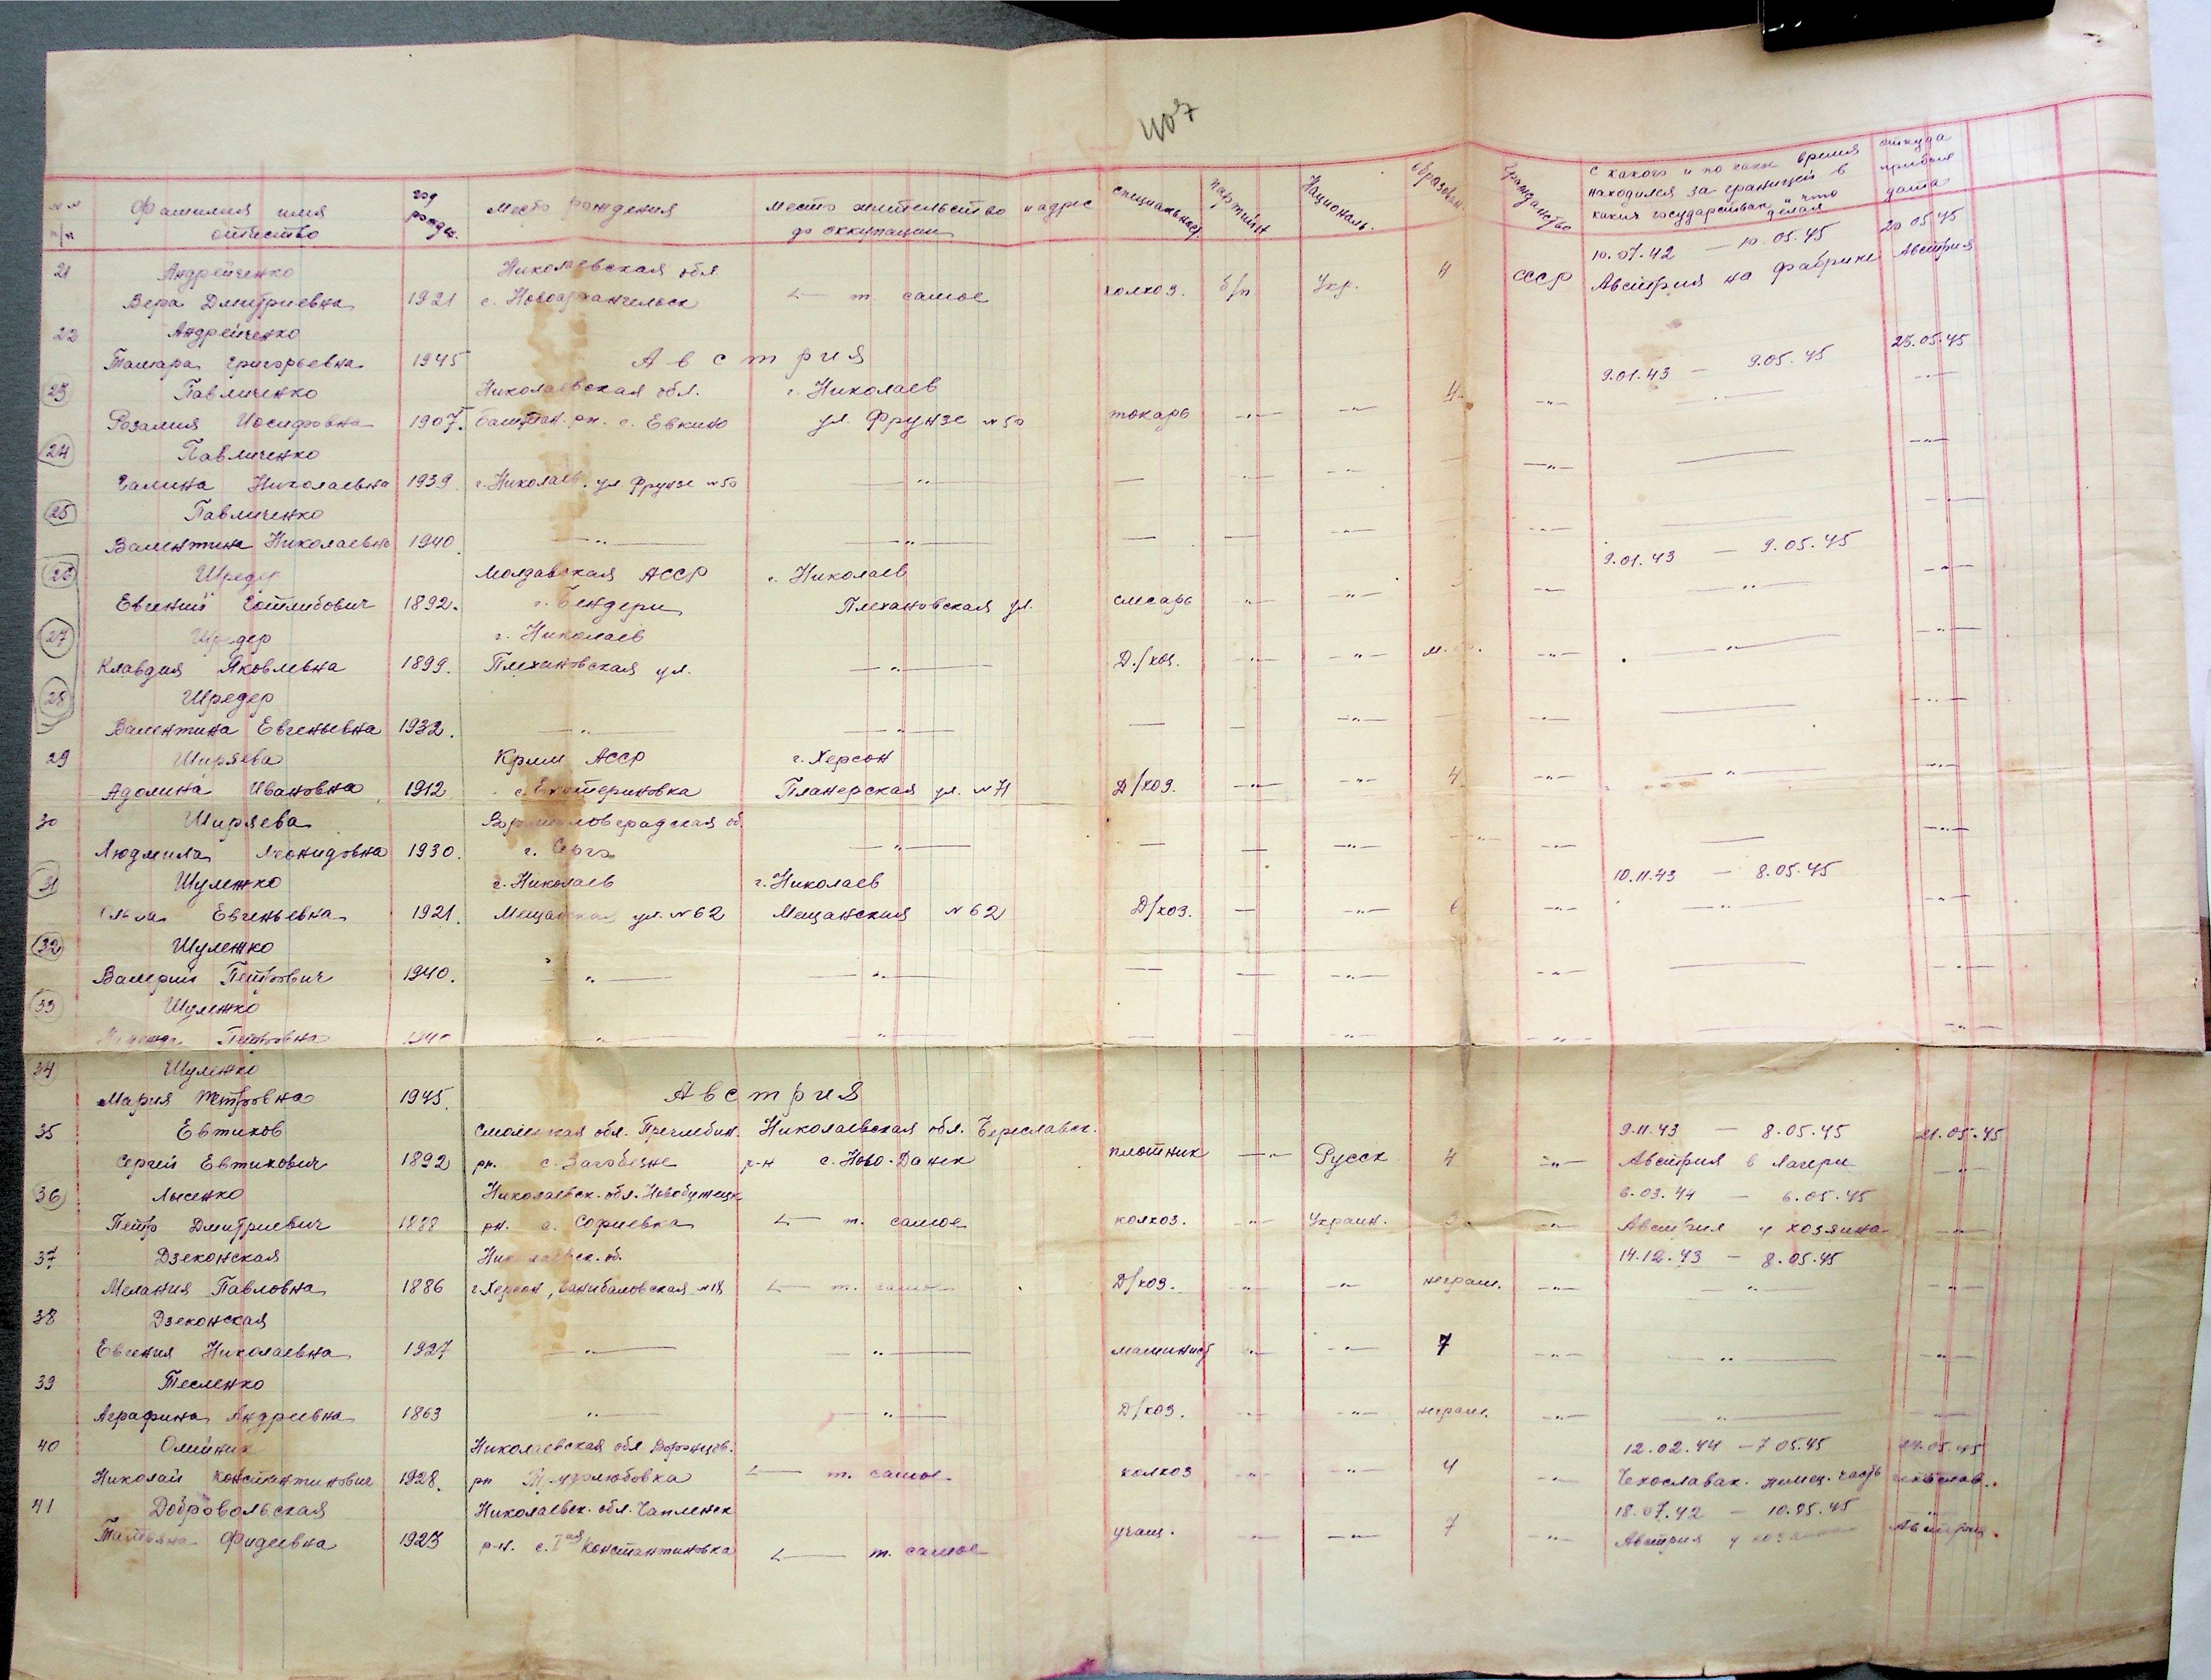 407
№№ п/п Фамилия имя отчество год рожден. Место рождения место жительство и адрес до оккупации специальност партийн Националь. образован. Гражданство с какого и по какое время находился за границей в каких государствах и что делал откуда прибыл дата
21 Андрейченко Николаевская обл. 10.07.42 — 10.05.45 20 05 45
Вера Дмитриевна 1921 с. Новоархангельск <— т. самое колхоз. б/п Укр. 4 СССР Австрия на фабрике Австрия
22 Андрейченко
Тамара Григорьевна 1945 Австрия
23 Павличенко Николаевская обл. г. Николаев 9.01.43 — 9.05.45 25.05.45
Розалия Иосифовна 1907. баштан. рн. с. Евкино ул. Фрунзе №50 токарь —"— —"— 4 —"— —"— —"—
24 Павличенко
Галина Николаевна 1939. г. Николаев. ул Фрунзе №50 —"— — —"— —"— —"— — —"—
25 Павличенко
Валентина Николаевна 1940. —"— —"— — — —"— —"— — —"—
26 Шредер Молдавская АССР г. Николаев 9.01.43 — 9.05.45
Евгений Готлибович 1892. г. Бендери Плехановская ул. слесарь —"— —"— —"— —"— —"—
27 Шредер г. Николаев
Клавдия Яковлевна 1899. Плехановская ул. —"— Д./хоз. —"— —"— —"— —"— —"—
28 Шредер
Валентина Евгеньевна 1932. —"— —"— — — —"— —"— — —"—
29 Ширяева Крим АССР г. Херсон
Адолина Ивановна 1912 с. Екатериновка Планерская ул. №71 Д/хоз. —"— —"— 4 —"— —"— —"—
30 Ширяева Ворошиловградская об.
Людмила Леонидовна 1930. г. Серго —"— — — —"— —"— — —"—
31 Шулежко г. Николаев г. Николаев 10.11.43 — 8.05.45
Евгеньевна 1921. Мещанская ул. №62 Мещанская №62 Д/хоз. — —"— 6 —"— —"— —"—
32 Шулежко
Валерий Петрович 1940. —"— —"— — — —"— —"— — —"—
33 Шулежко
Петровна —"— —"— — — —"— —"— — —"—
34 Шулежко
Мария Петровна 1945. Австрия
35 Евтихов Смоленская обл. Пречистин. Николаевская обл. Бериславск. 9.11.43 — 8.05.45 21.05.45
Сергей Евтихович 1892 рн. с. р-н с. Ново-Данск плотник —"— Русск 4 —"— Австрия в лагери —"—
36 Лысенко Николаевск. обл. Новобугецк 6.03.44 — 6.05.45
Петр Дмитриевич 1888 рн. с. Софиевка <— т. самое колхоз. —"— Украин. 3 —"— Австрия у хозяина —"—
37 Дзеконская Николаевск. об. 14.12.43 — 8.05.45
Мелания Павловна 1886 г. Херсон, Ганибаловская №18 <— т. самое Д/хоз. —"— —"— неграм. —"— —"— —"—
38 Дзеконская
Евгения Николаевна 1927 —"— —"— машинист —"— —"— 7 —"— —"— —"—
39 Тесленко
Аграфина Андреевна 1863 —"— —"— Д/хоз. —"— —"— неграм. —"— —"— —"—
40 Олийник Николаевская обл Воронцов. 12.02.44 — 7 05.45 24.05.45
Николай Константинович 1928. рн Трурлюбовка <— т. самое. колхоз —"— —"— 4 —"— Чехославак. немец. часть чехослав.
41 Добровольская Николаевск. обл. Чаплинск 18.07.42 — 10.05.45 "
Татьяна Фадеевна 1923 р-н. с. Iая Константиновка <— т. самое учащ. —"— —"— 7 —"— Австрия у хозяина Австрия.